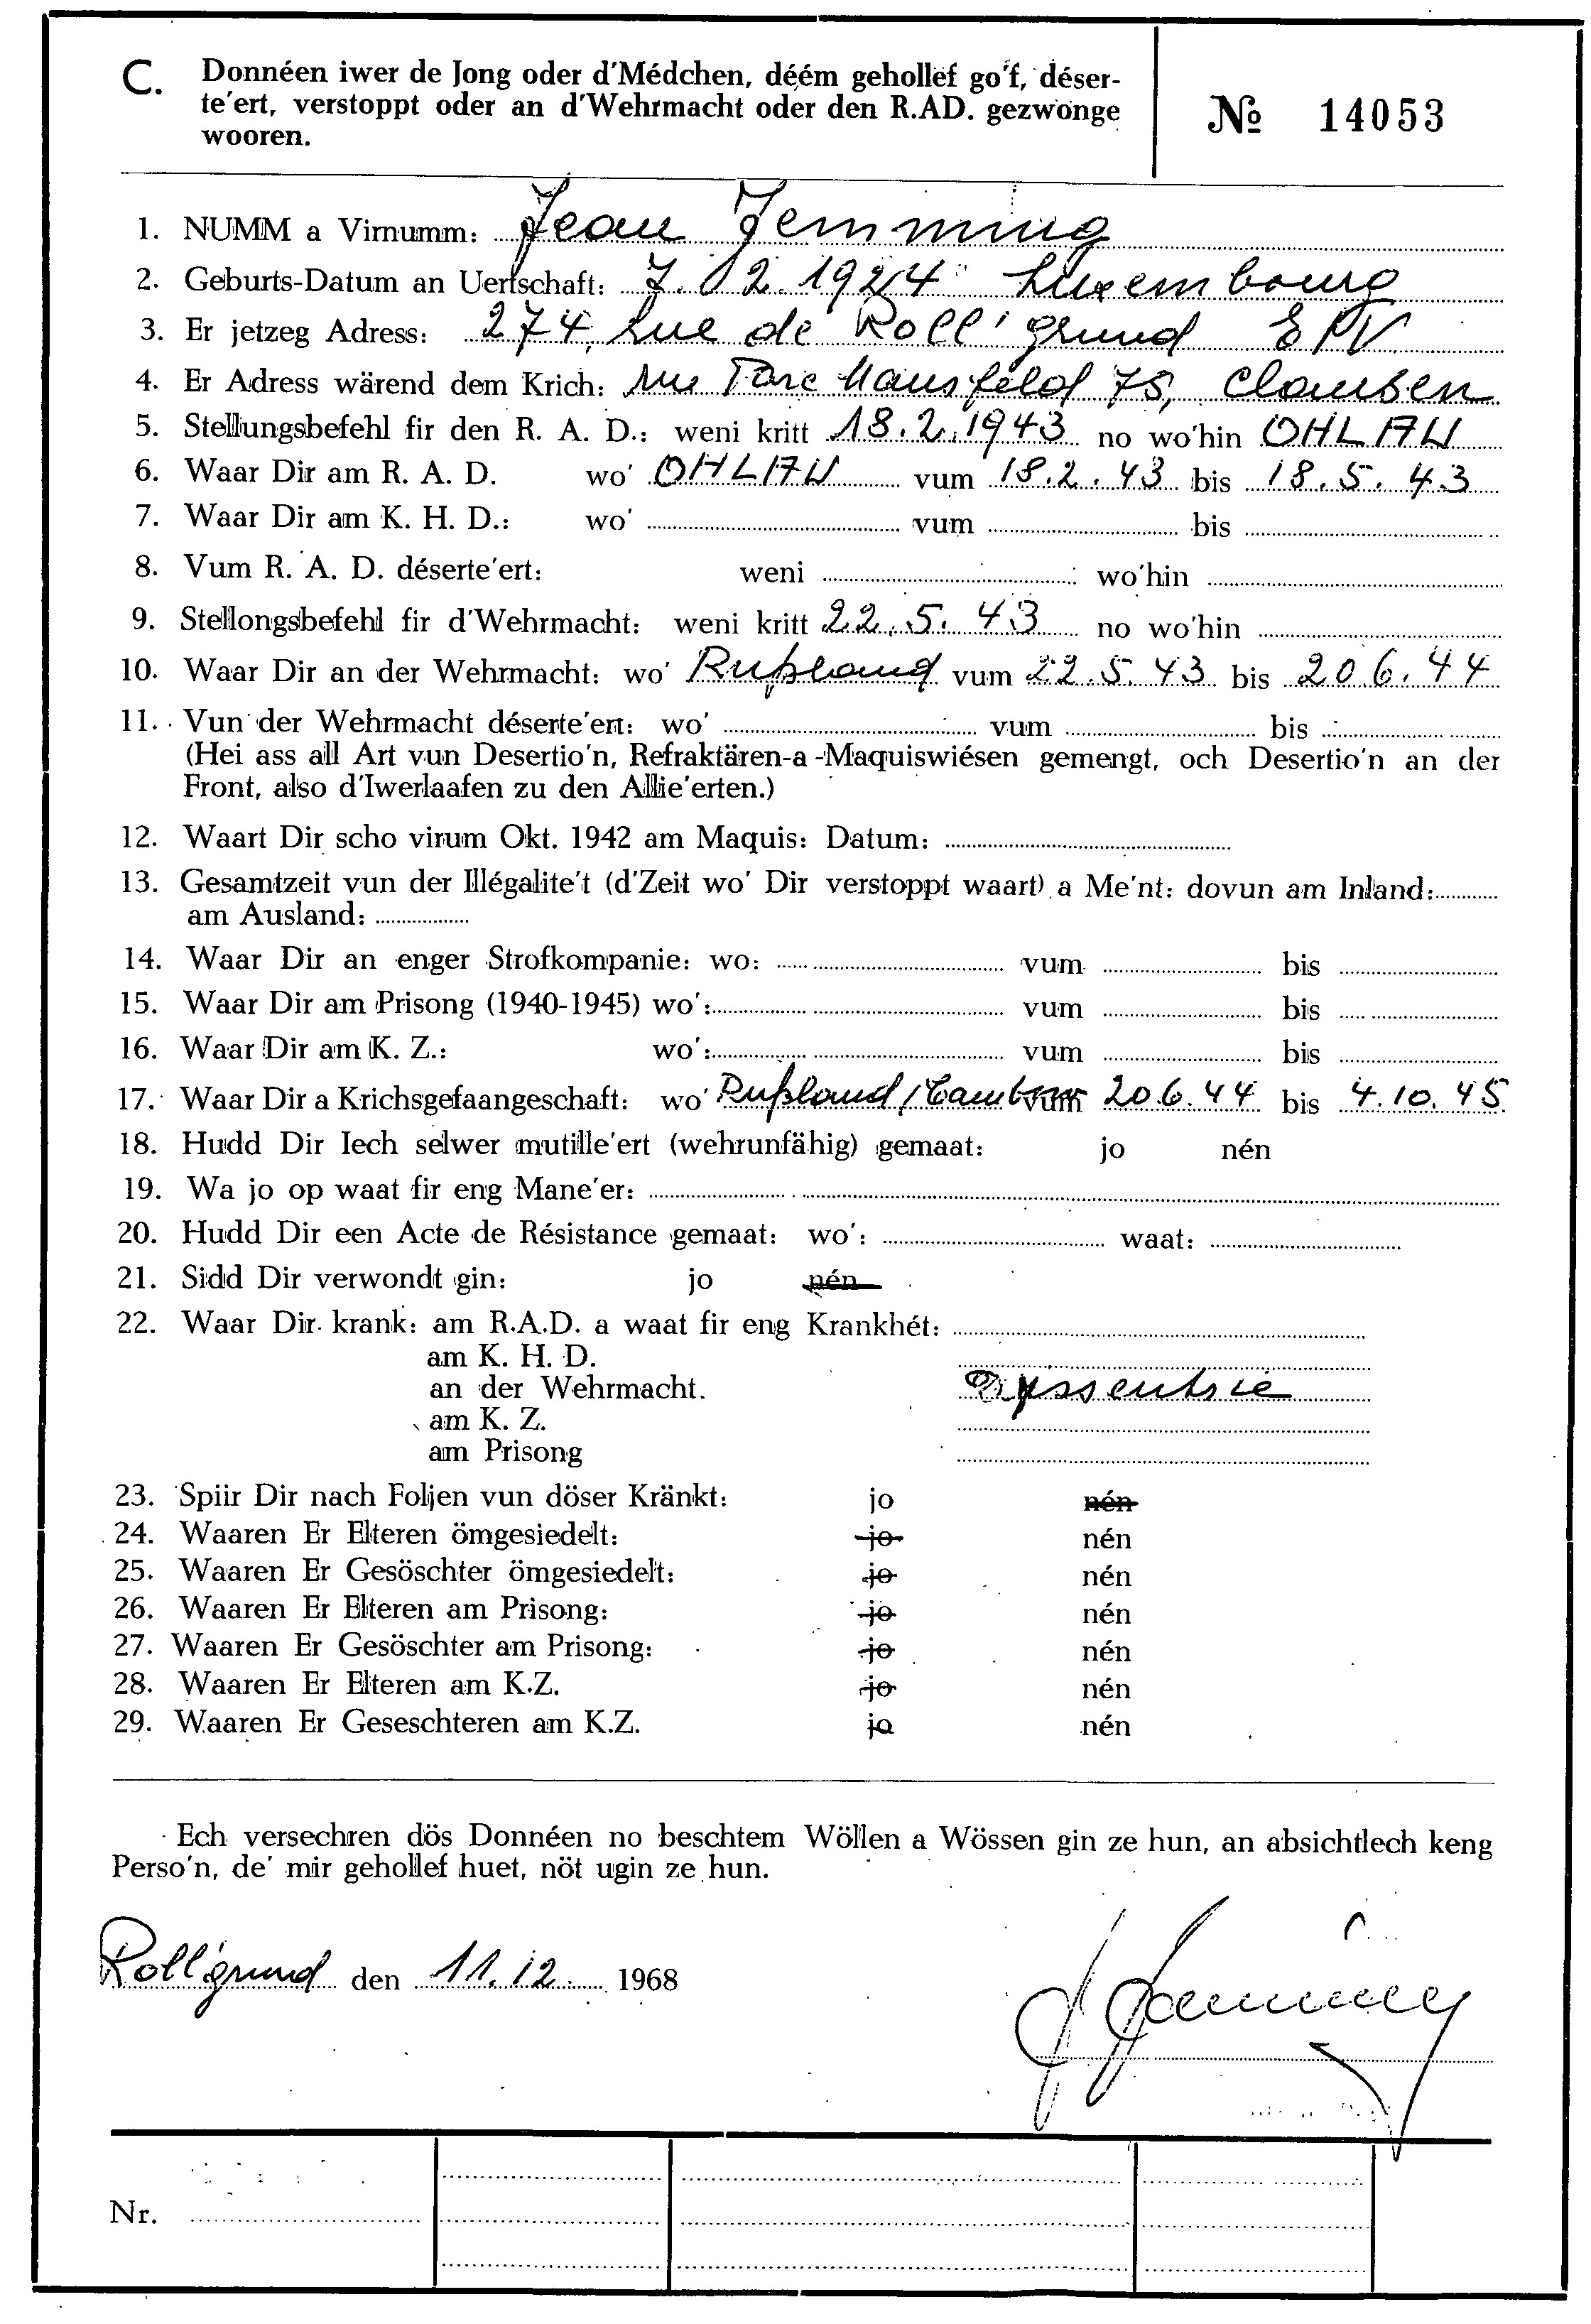 C. Donnéen iwer de Jong oder d'Médchen, déém gehollef go'f, déser-
te'ert, verstoppt oder an d'Wehrmacht oder den R.AD. gezwonge
wooren.
№ 14053
1. NUMM a Virnumm: Jean Jemming
2. Geburts-Datum an Uertschaft: 7.12.1924 Luxembourg
3. Er jetzeg Adress: 274, rue de Roll'grund
4. Er Adress wärend dem Krich: Mansfeld 75, Clausen
5. Stellungsbefehl fir den R. A. D.: weni kritt 18.2.1943 no wo'hin OHLAU
6. Waar Dir am R. A. D. wo' OHLAU vum 18.2.43 bis 18.5.43
7. Waar Dir am K. H. D.: wo' vum bis
8. Vum R. A. D. déserte'ert: weni wo'hin
9. Stellongsbefehl fir d'Wehrmacht: weni kritt 22.5.43 no wo'hin
10. Waar Dir an der Wehrmacht: wo' Rußland vum 22.5.43 bis 20.6.44
11. Vun der Wehrmacht déserte'ert: wo' vum bis
(Hei ass all Art vun Desertio'n, Refraktären-a -Maquiswiésen gemengt, och Desertio'n an der
Front, also d'Iwerlaafen zu den Allie'erten.)
12. Waart Dir scho virum Okt. 1942 am Maquis: Datum:
13. Gesamtzeit vun der Illégalite't (d'Zeit wo' Dir verstoppt waart) a Me'nt: dovun am Inland:
am Ausland:
14. Waar Dir an enger Strofkompanie: wo: vum bis
15. Waar Dir am Prisong (1940-1945) wo': vum bis
16. Waar Dir am K. Z.: wo': vum bis
17. Waar Dir a Krichsgefaangeschaft: wo' Rußland/Tambow vum 20.6.44 bis 4.10.45
18. Hudd Dir Iech selwer mutille'ert (wehrunfähig) gemaat: jo nén
19. Wa jo op waat fir eng Mane'er:
20. Hudd Dir een Acte de Résistance gemaat: wo': waat:
21. Sidd Dir verwondt gin: jo nén
22. Waar Dir krank: am R.A.D. a waat fir eng Krankhét:
am K. H. D.
an der Wehrmacht. Dyssentrie
am K. Z.
am Prisong
23. Spiir Dir nach Foljen vun döser Kränkt: jo nén
24. Waaren Er Elteren ömgesiedelt: jo nén
25. Waaren Er Gesöschter ömgesiedelt: jo nén
26. Waaren Er Elteren am Prisong: jo nén
27. Waaren Er Gesöschter am Prisong: jo nén
28. Waaren Er Elteren am K.Z. jo nén
29. Waaren Er Geseschteren am K.Z. jo nén
Ech versechren dös Donnéen no beschtem Wöllen a Wössen gin ze hun, an absichtlech keng
Perso'n, de' mir gehollef huet, nöt ugin ze hun.
Roll'grund den 11.12. 1968
Nr.